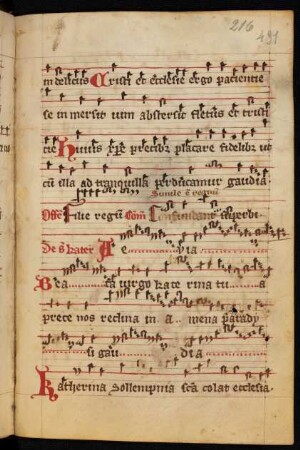 216
491
in delictis Cristi et ecclesie ergo pacientie
se in mersit uim absterse fletus et tristi
cie Huius xpe precibus placare fidelibus ut
cum illa ad tranquilla perducamur gaudia.
Simile regnum
Offm Filie regum Com Confundantur superbi
De s kater Alle ya
Bea ta uirgo kate rina tu a
prece nos reclina in a mena parady
si gau dia
Katherina sollempnia sca colat ecclesia